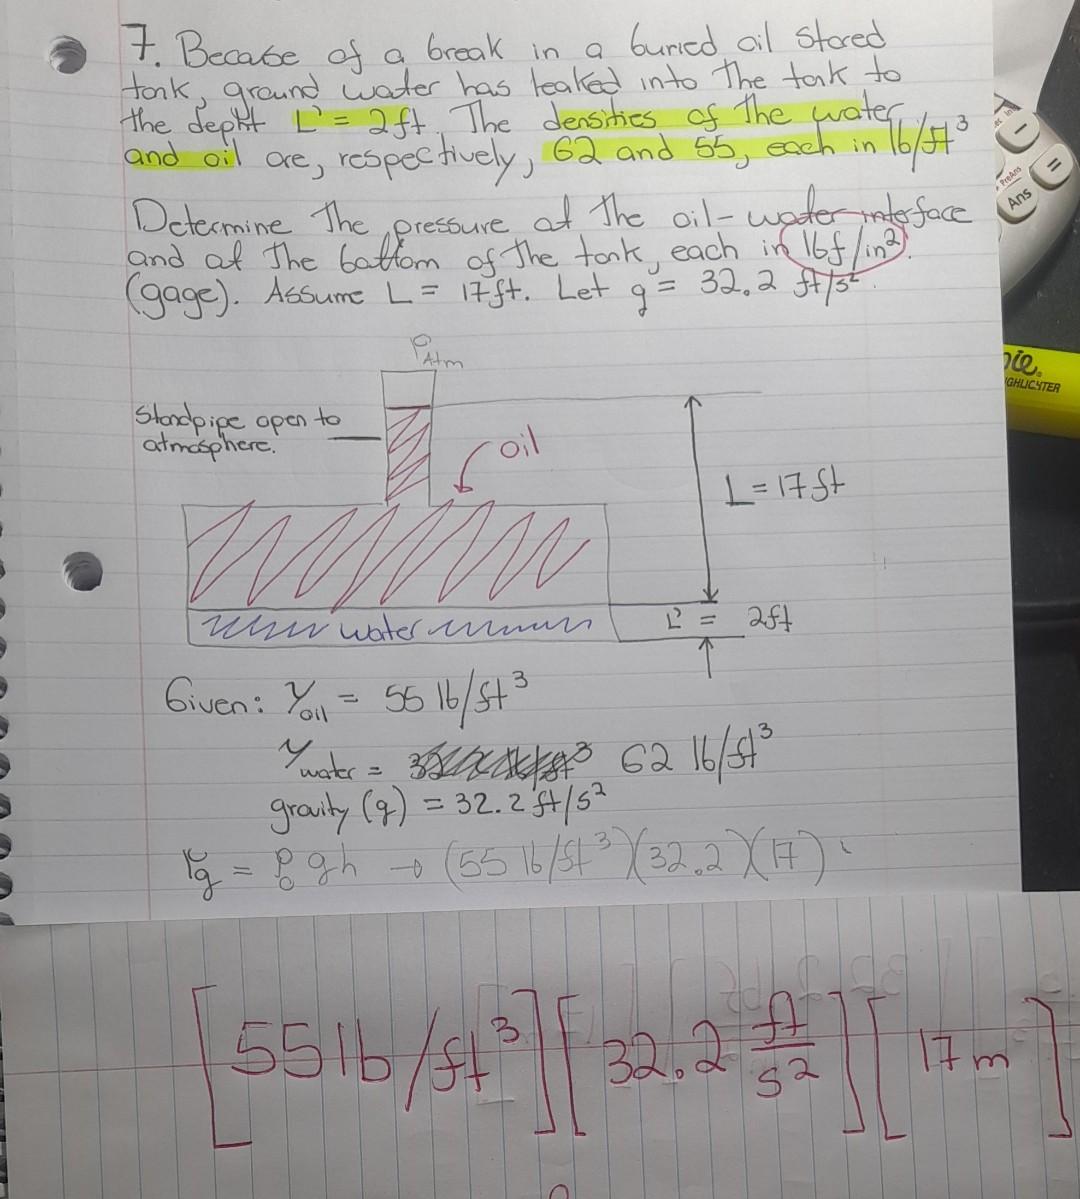 7. Because of a break in a buried oil stored
tank, ground water has leaked into the tank to
the depht L' = 2ft. The densities of the water
and oil are, respectively, 62 and 55, each in lb/ft³
Determine The pressure at the oil-water interface
and at the bottom of the tank, each in lbf/in².
(gage). Assume L = 17ft. Let g = 32.2 ft/s².
PAtm
Standpipe open to
atmosphere.
oil
L = 17 ft
water
L' = 2ft
Given: γoil = 55 lb/ft³
γwater = 62 lb/ft³
gravity (g) = 32.2 ft/s²
Pg = ρo gh → (55 lb/ft³)(32.2)(17)
[55 lb/ft³] [32.2 ft/s²] [17 m]
Ans
PreAns
=
HIGHLIGHTER